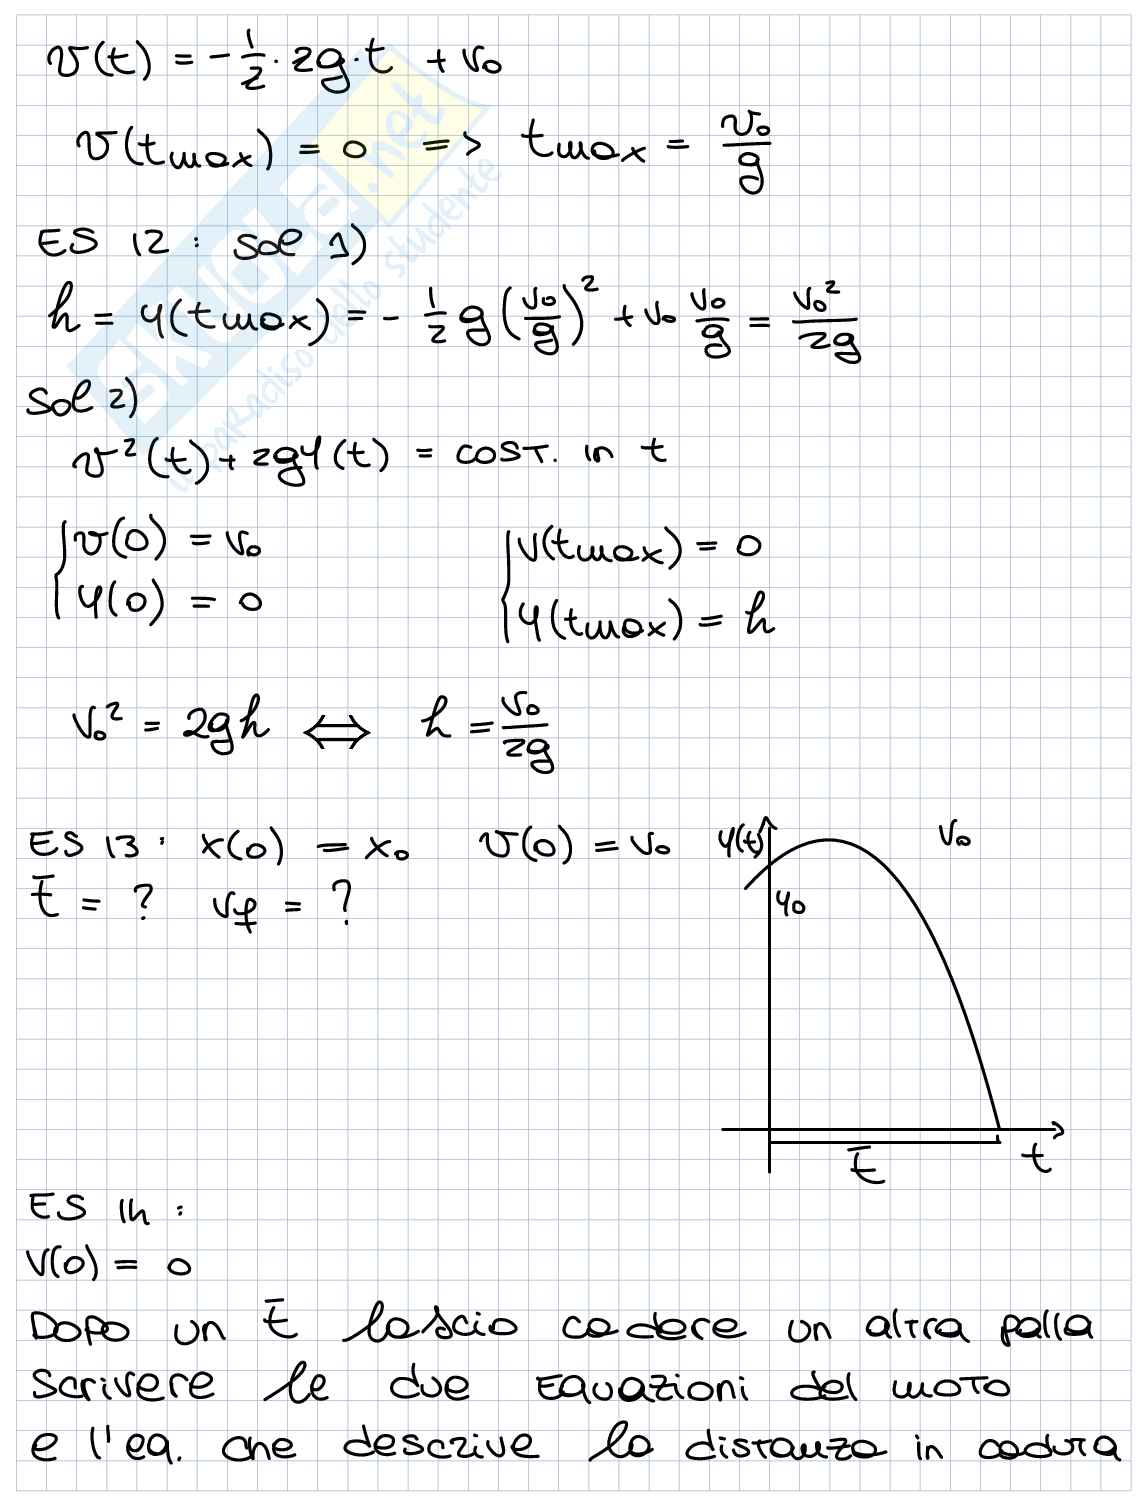 v(t) = -1/2 · 2g · t + v₀
v(tmax) = 0 => tmax = v₀/g
ES 12 : Sol 1)
h = y(tmax) = - 1/2 g (v₀/g)² + v₀ v₀/g = v₀²/2g
Sol 2)
v²(t) + 2gy(t) = COST. in t
{ v(0) = v₀
y(0) = 0
{ v(tmax) = 0
y(tmax) = h
v₀² = 2gh ⟺ h = v₀/2g
ES 13 : x(0) = x₀ v(0) = v₀
t̄ = ? vf = ?
y(t)
v₀
y₀
t̄
t
ES 14 :
V(0) = 0
Dopo un t̄ lascio cadere un altra palla
Scrivere le due Equazioni del moto
e l'eq. che descrive la distanza in caduta
SKUOLA.net
il paradiso dello studente